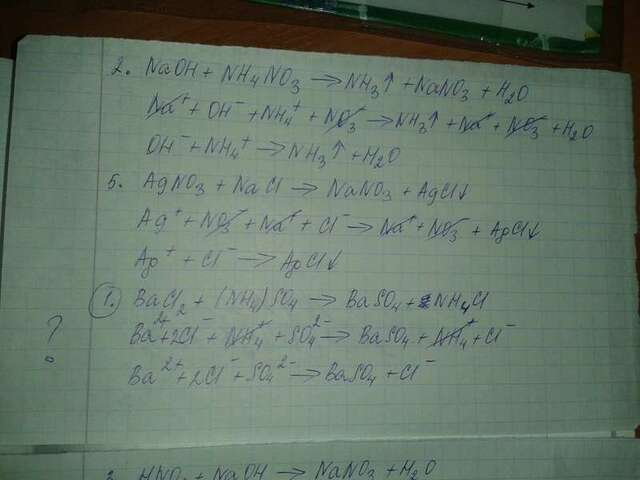 2. NaOH + NH₄NO₃ → NH₃↑ + NaNO₃ + H₂O
Na⁺ + OH⁻ + NH₄⁺ + NO₃⁻ → NH₃↑ + Na⁺ + NO₃⁻ + H₂O
OH⁻ + NH₄⁺ → NH₃↑ + H₂O
5. AgNO₃ + NaCl → NaNO₃ + AgCl↓
Ag⁺ + NO₃⁻ + Na⁺ + Cl⁻ → Na⁺ + NO₃⁻ + AgCl↓
Ag⁺ + Cl⁻ → AgCl↓
1. BaCl₂ + (NH₄)SO₄ → BaSO₄ + NH₄Cl
? Ba²⁺ + 2Cl⁻ + NH₄⁺ + SO₄²⁻ → BaSO₄ + NH₄⁺ + Cl⁻
Ba²⁺ + 2Cl⁻ + SO₄²⁻ → BaSO₄ + Cl⁻
3. HNO₃ + NaOH → NaNO₃ + H₂O